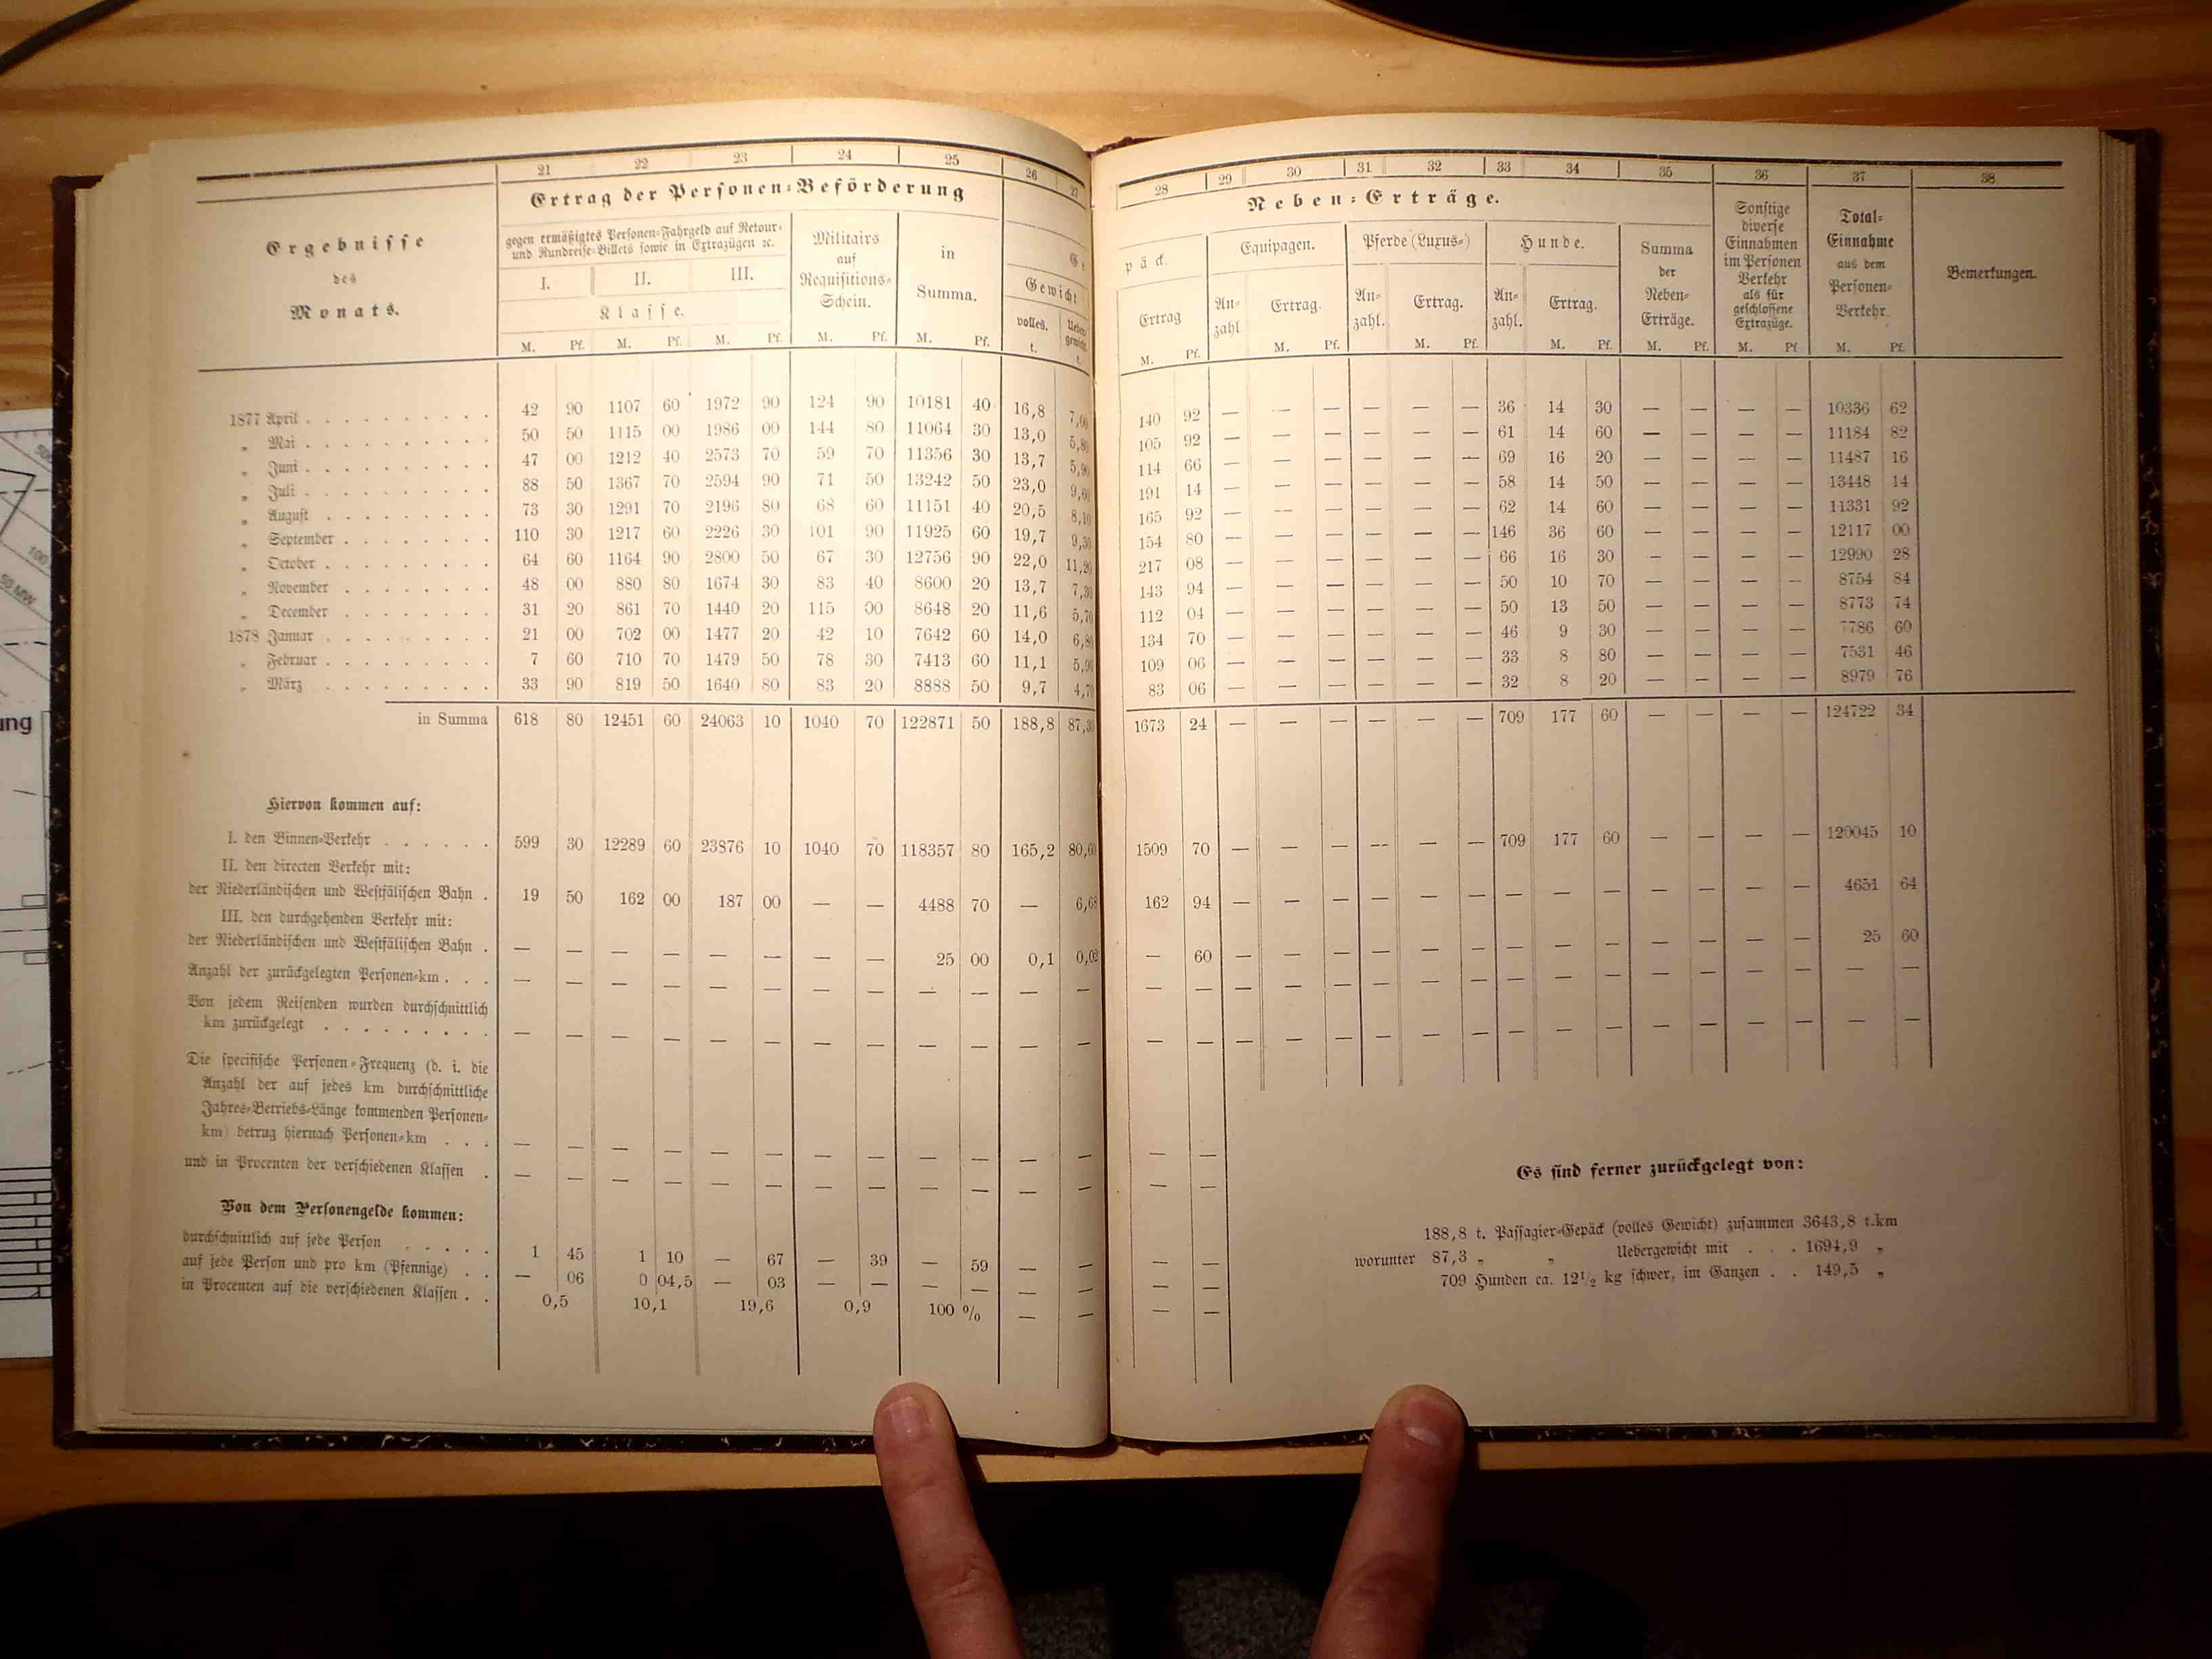 21 22 23 24 25 26 27
Ergebnisse
des
Monats.
Ertrag der Personen-Beförderung
gegen ermäßigtes Personen-Fahrgeld auf Retour-
und Rundreise-Billets sowie in Extrazügen ꝛc.
I. II. III.
Klasse.
Militairs
auf
Requisitions-
Schein.
in
Summa.
Ge
Gewicht
volles. Ueber-
gewicht.
t. t.
M. Pf. M. Pf. M. Pf. M. Pf. M. Pf.
1877 April 42 90 1107 60 1972 90 124 90 10181 40 16,8 7,00
„ Mai 50 50 1115 00 1986 00 144 80 11064 30 13,0 5,80
„ Juni 47 00 1212 40 2573 70 59 70 11356 30 13,7 5,90
„ Juli 88 50 1367 70 2594 90 71 50 13242 50 23,0 9,60
„ August 73 30 1291 70 2196 80 68 60 11151 40 20,5 8,10
„ September 110 30 1217 60 2226 30 101 90 11925 60 19,7 9,30
„ October 64 60 1164 90 2800 50 67 30 12756 90 22,0 11,20
„ November 48 00 880 80 1674 30 83 40 8600 20 13,7 7,30
„ December 31 20 861 70 1440 20 115 00 8648 20 11,6 5,70
1878 Januar 21 00 702 00 1477 20 42 10 7642 60 14,0 6,80
„ Februar 7 60 710 70 1479 50 78 30 7413 60 11,1 5,90
„ März 33 90 819 50 1640 80 83 20 8888 50 9,7 4,70
in Summa 618 80 12451 60 24063 10 1040 70 122871 50 188,8 87,30
Hiervon kommen auf:
I. den Binnen-Verkehr 599 30 12289 60 23876 10 1040 70 118357 80 165,2 80,60
II. den directen Verkehr mit:
der Niederländischen und Westfälischen Bahn 19 50 162 00 187 00 — — 4488 70 — 6,68
III. den durchgehenden Verkehr mit:
der Niederländischen und Westfälischen Bahn — — — — — — — — 25 00 0,1 0,02
Anzahl der zurückgelegten Personen-km — — — — — — — — — — — —
Von jedem Reisenden wurden durchschnittlich
km zurückgelegt — — — — — — — — — — — —
Die specifische Personen-Frequenz (d. i. die
Anzahl der auf jedes km durchschnittliche
Jahres-Betriebs-Länge kommenden Personen-
km) betrug hiernach Personen-km — — — — — — — — — — — —
und in Procenten der verschiedenen Klassen — — — — — — — — — — — —
Von dem Personengelde kommen:
durchschnittlich auf jede Person 1 45 1 10 — 67 — 39 — 59 — —
auf jede Person und pro km (Pfennige) — 06 0 04,5 — 03 — — — — — —
in Procenten auf die verschiedenen Klassen 0,5 10,1 19,6 0,9 100 % — —
28 29 30 31 32 33 34 35 36 37 38
Neben-Erträge.
päck.
Ertrag
M. Pf.
Equipagen.
An-
zahl
Ertrag.
M. Pf.
Pferde (Luxus-)
An-
zahl.
Ertrag.
M. Pf.
Hunde.
An-
zahl.
Ertrag.
M. Pf.
Summa
der
Neben-
Erträge.
M. Pf.
Sonstige
diverse
Einnahmen
im Personen
Verkehr
als für
geschlossene
Extrazüge.
M. Pf
Total-
Einnahme
aus dem
Personen-
Verkehr.
M. Pf.
Bemerkungen.
140 92 — — — — — — 36 14 30 — — — — 10336 62
105 92 — — — — — — 61 14 60 — — — — 11184 82
114 66 — — — — — — 69 16 20 — — — — 11487 16
191 14 — — — — — — 58 14 50 — — — — 13448 14
165 92 — — — — — — 62 14 60 — — — — 11331 92
154 80 — — — — — — 146 36 60 — — — — 12117 00
217 08 — — — — — — 66 16 30 — — — — 12990 28
143 94 — — — — — — 50 10 70 — — — — 8754 84
112 04 — — — — — — 50 13 50 — — — — 8773 74
134 70 — — — — — — 46 9 30 — — — — 7786 60
109 06 — — — — — — 33 8 80 — — — — 7531 46
83 06 — — — — — — 32 8 20 — — — — 8979 76
1673 24 — — — — — — 709 177 60 — — — — 124722 34
1509 70 — — — — — — 709 177 60 — — — — 120045 10
162 94 — — — — — — — — — — — — — 4651 64
— 60 — — — — — — — — — — — — — 25 60
— — — — — — — — — — — — — — — — —
— — — — — — — — — — — — — — — — —
— —
— —
— —
— —
— —
Es sind ferner zurückgelegt von:
188,8 t. Passagier-Gepäck (volles Gewicht) zusammen 3643,8 t.km
worunter 87,3 „ „ Uebergewicht mit . . . 1694,9 „
709 Hunden ca. 12½ kg schwer, im Ganzen . . 149,5 „
100
50 MW
ung